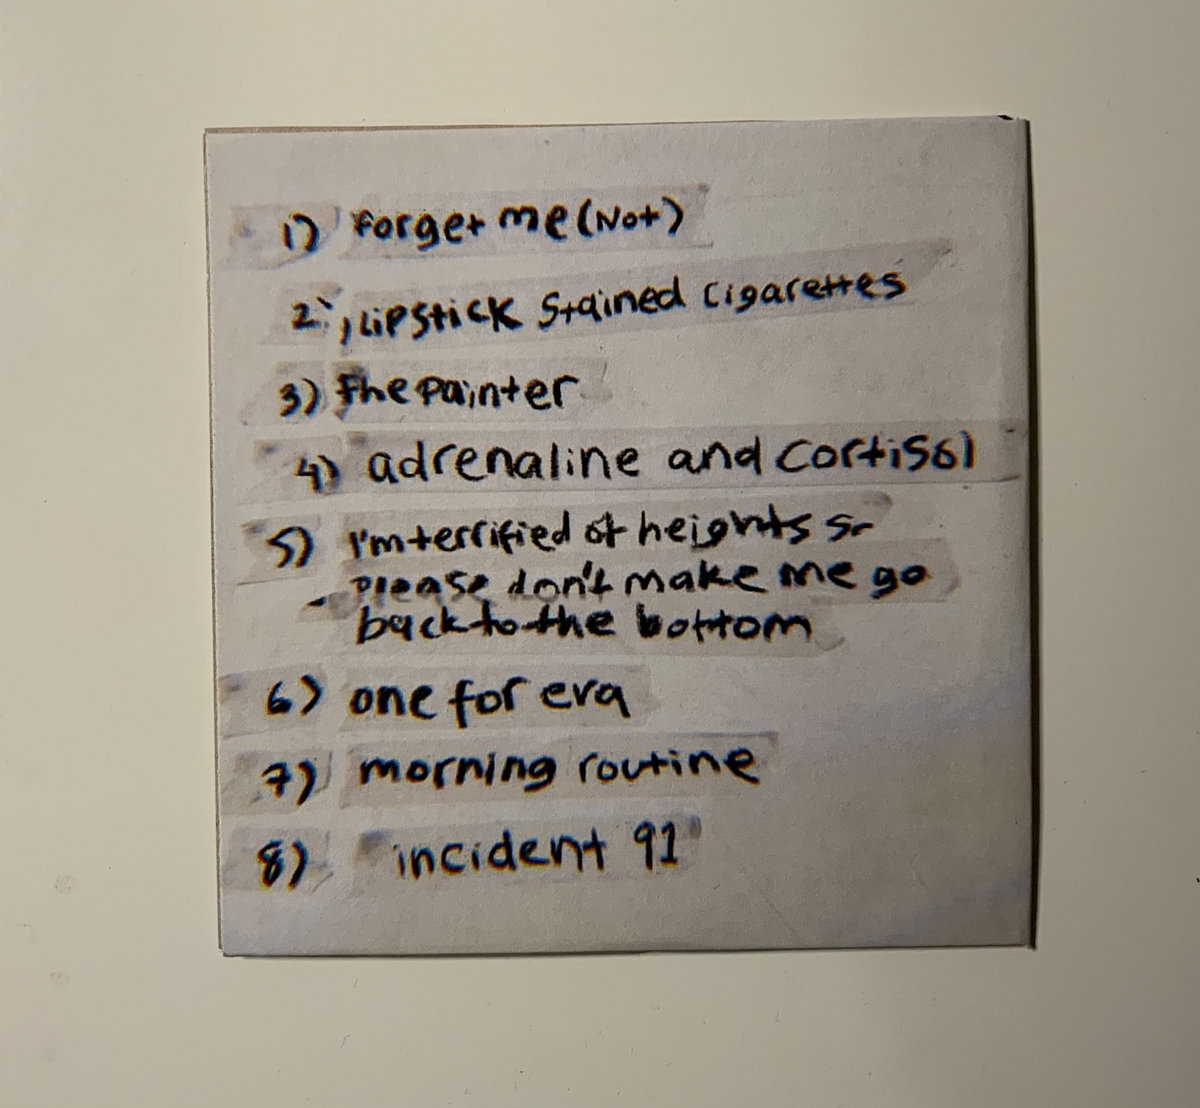 1) Forget me (Not)
2) Lipstick stained cigarettes
3) The painter
4) adrenaline and cortisol
5) I'm terrified of heights so
please don't make me go
back to the bottom
6) one for eva
7) morning routine
8) incident 91